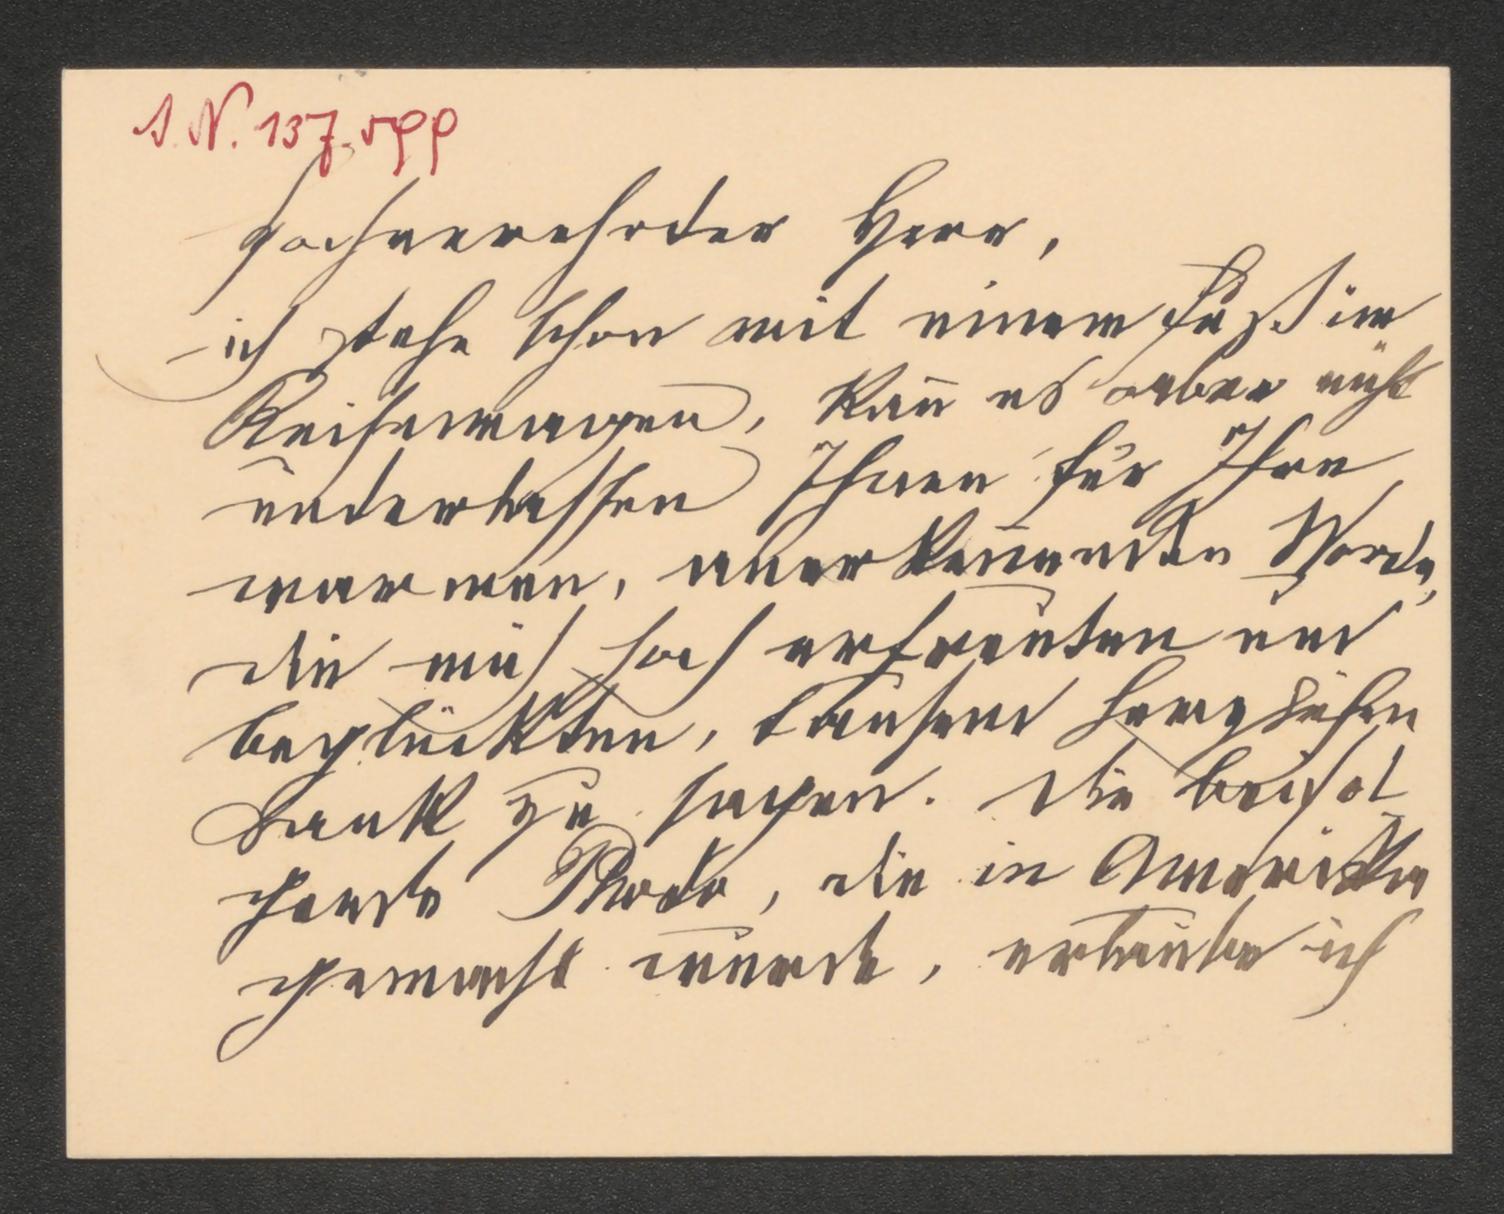 I. N. 137.599
Hochverehrter Herr,
ich stehe schon mit einem Fuß im
Reisewagen, kañ es aber nicht
unterlassen Ihnen für Ihre
warmen, anerkeñenden Worte,
die mich hoch erfreuten und
beglückten, tausend herzlichen
Dank zu sagen. Die beifol
gende Photo, die in Amerika
gemacht wurde, erlaube ich